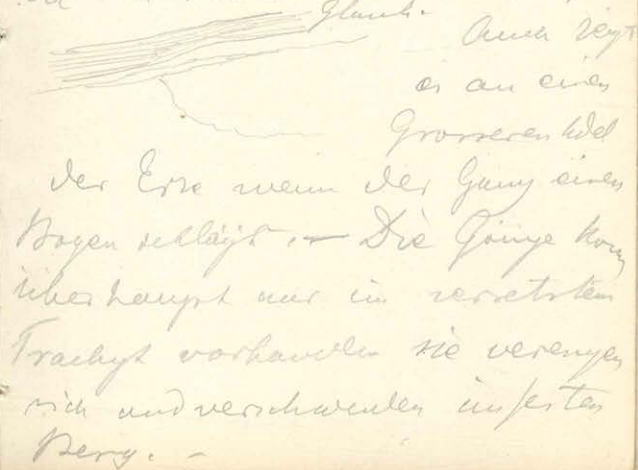 Glauk.
Auch zeigt
es an einen
Grösseren Adel
der Erze wenn der Gang einen
Bogen schlägt. — Die Gänge kom
überhaupt nur im zersetzten
Trachyt vorhanden sie verengen
sich und verschwinden im festen
Berg. –